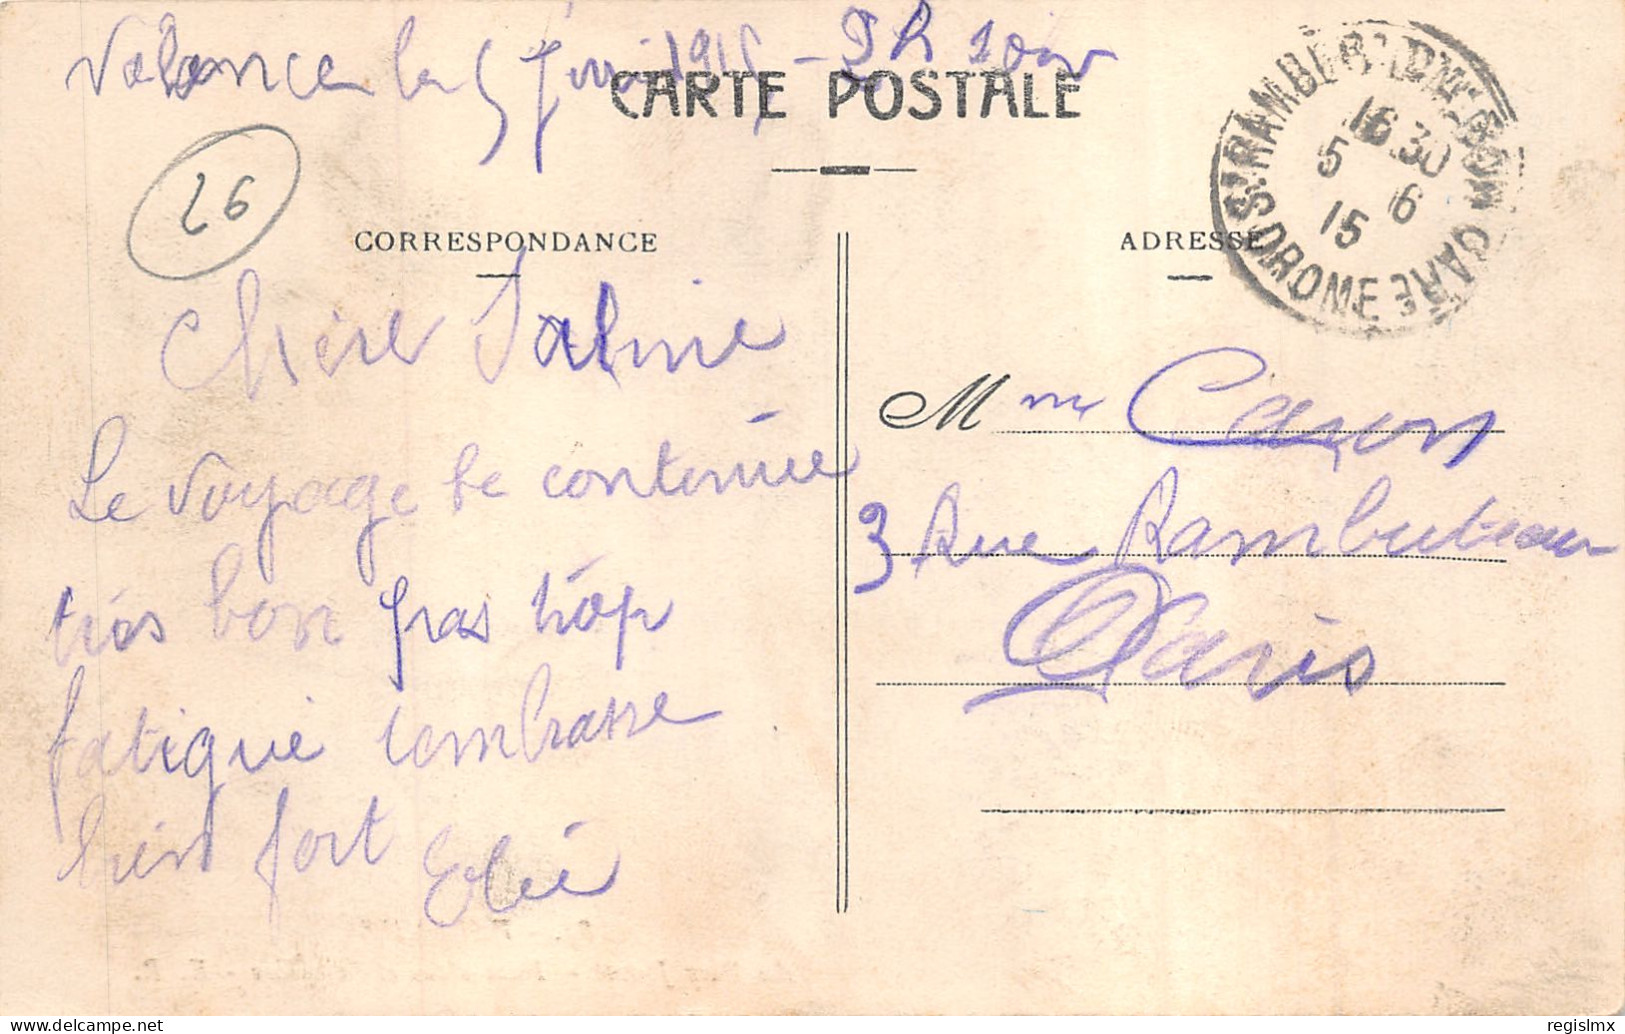 Valence le 5 juin 1915 - 2 h soir
CARTE POSTALE
26
CORRESPONDANCE
Chère
Le voyage se continue
très bon pas trop
fatigué
bien fort
ADRESSE
Mme Caron
3 Rue Rambuteau
Paris
ST RAMBERT D'ALBON GARE
16 30
5 6
15
DROME
regislmx